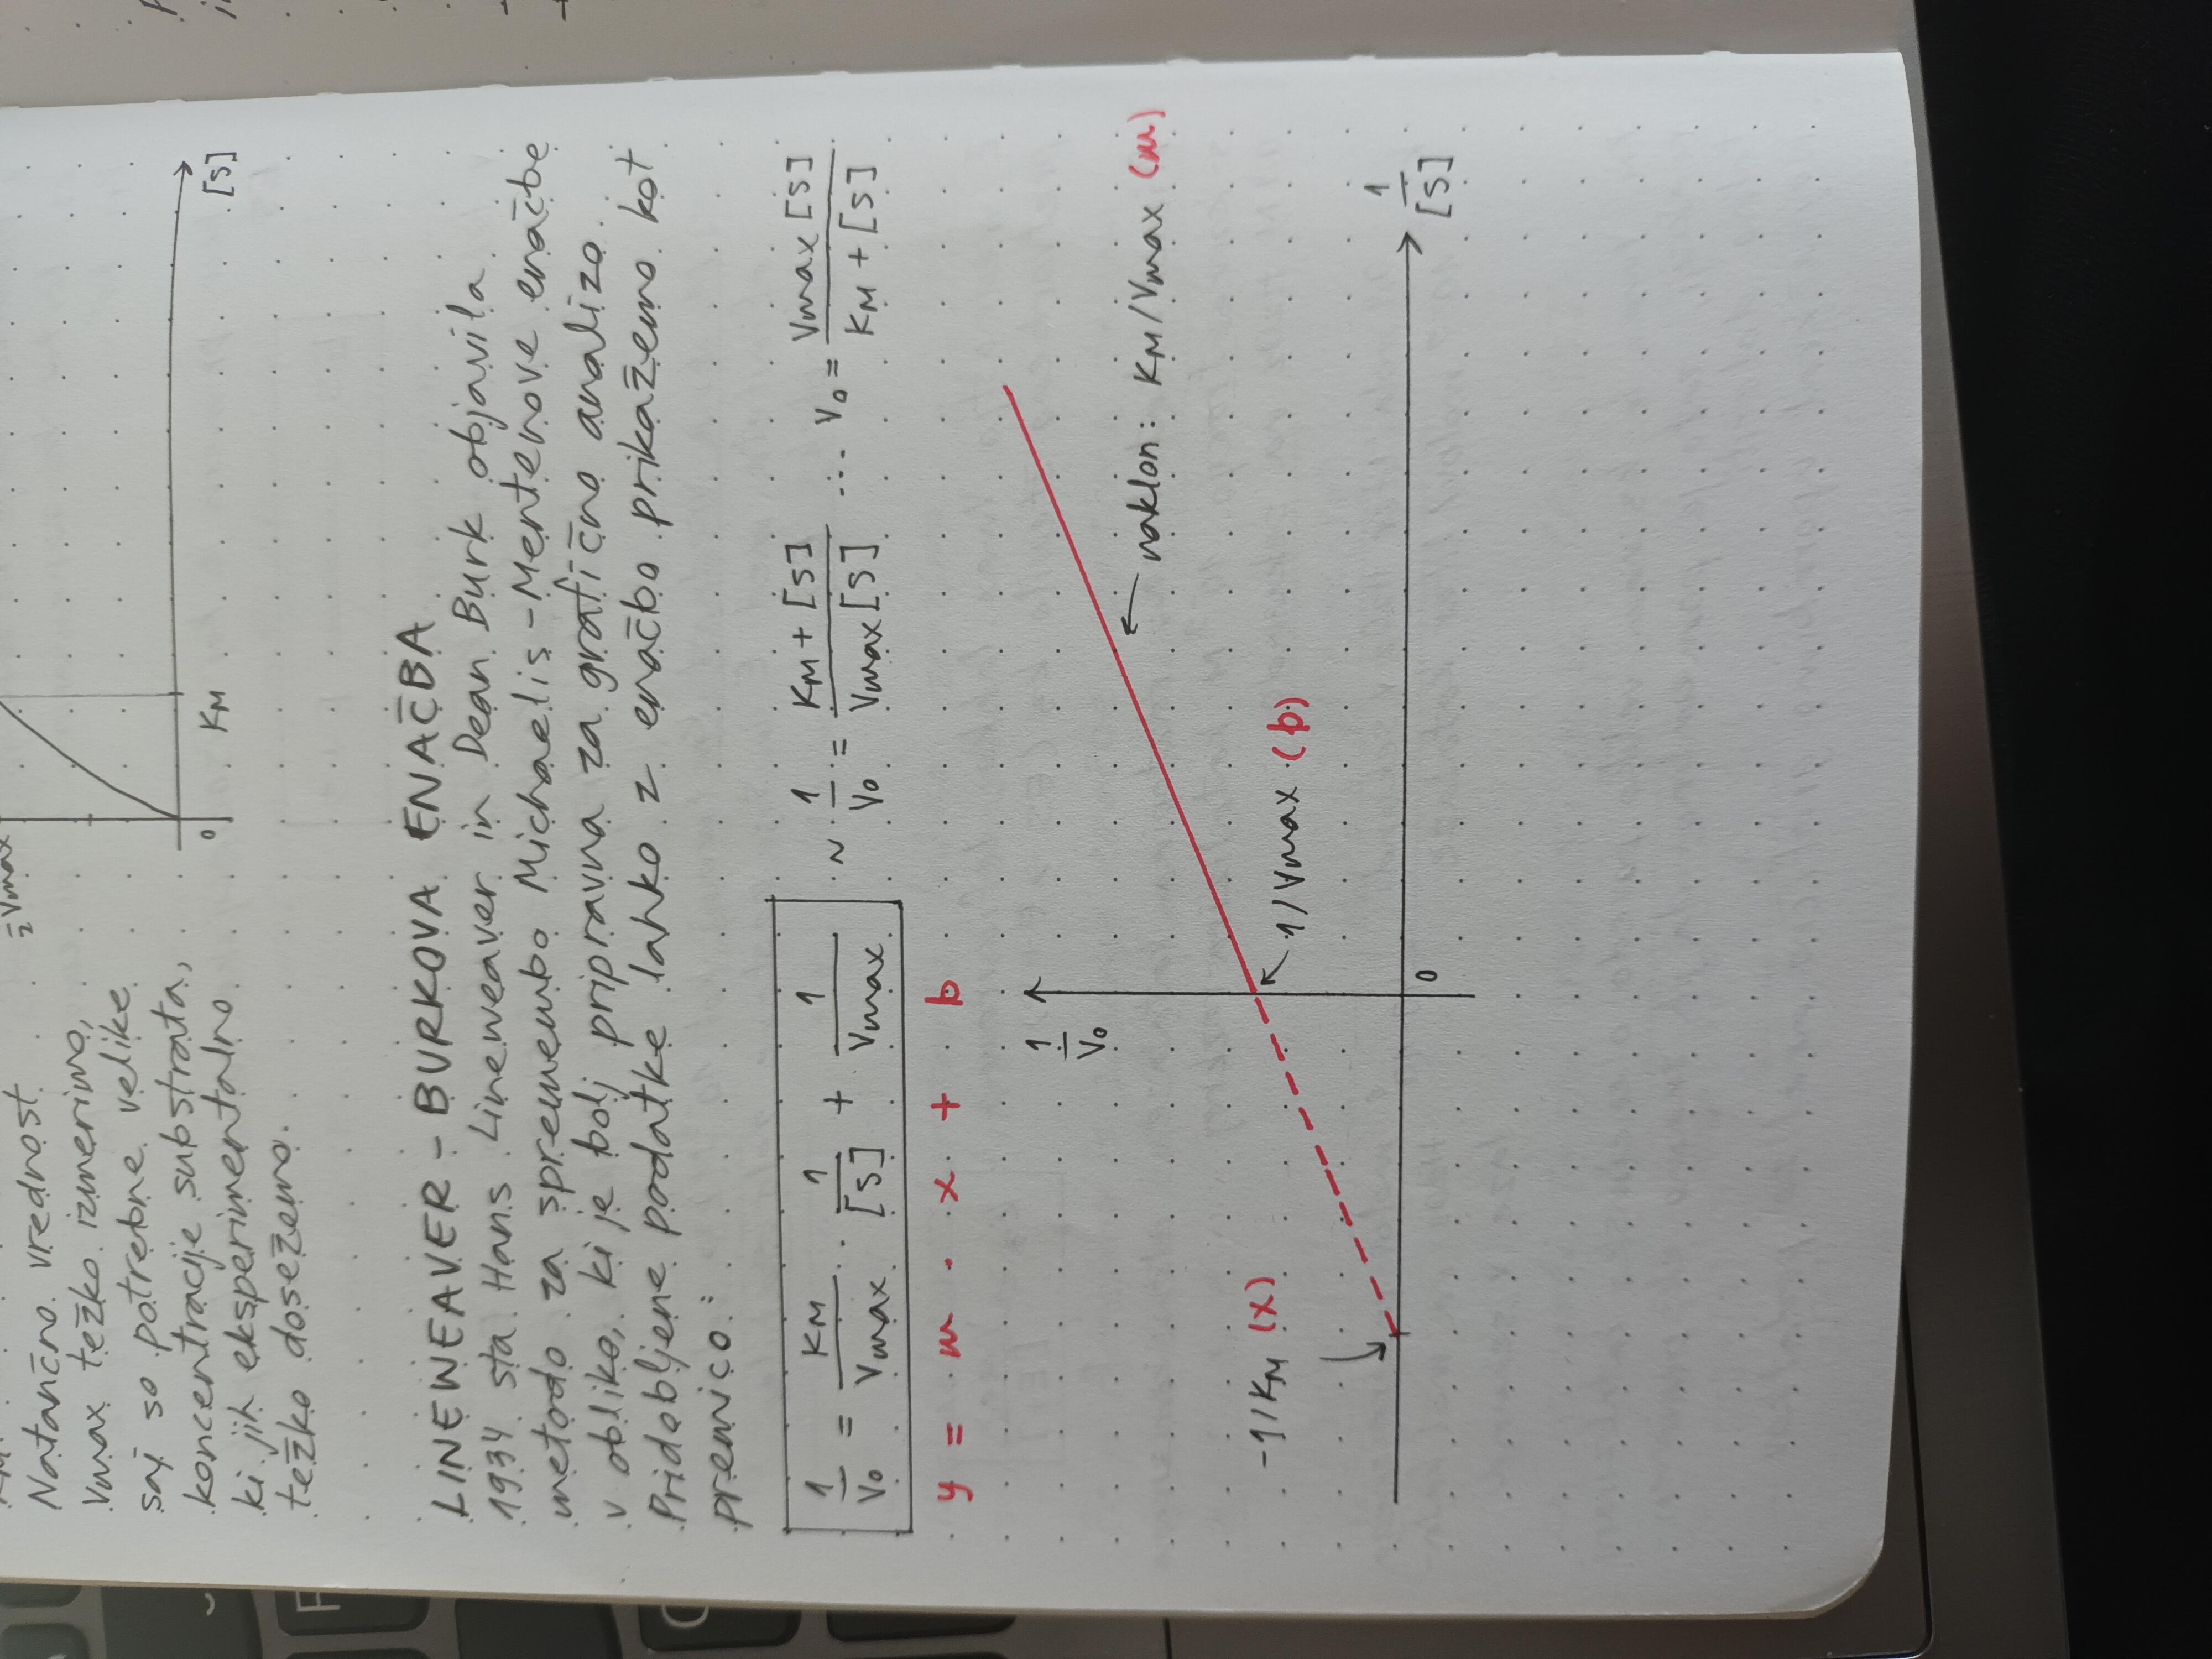 KM.
Natančno vrednost
Vmax težko izmerimo,
saj so potrebne velike
koncentracije substrata,
ki jih eksperimentalno
težko dosežemo.
½Vmax
0
KM
[S]
LINEWEAVER - BURKOVA ENAČBA
1934 sta Hans Lineweaver in Dean Burk objavila
metodo za spremembo Michaelis-Mentenove enačbe
v obliko, ki je bolj pripravna za grafično analizo.
Pridobljene podatke lahko z enačbo prikažemo kot
premico:
1/V₀ = KM/Vmax · 1/[S] + 1/Vmax ~ 1/V₀ = KM + [S] / Vmax [S] ∴ V₀ = Vmax [S] / KM + [S]
y = m · x + b
1/V₀
naklon: KM/Vmax (m)
-1/KM (x)
1/Vmax (b)
0
1/[S]